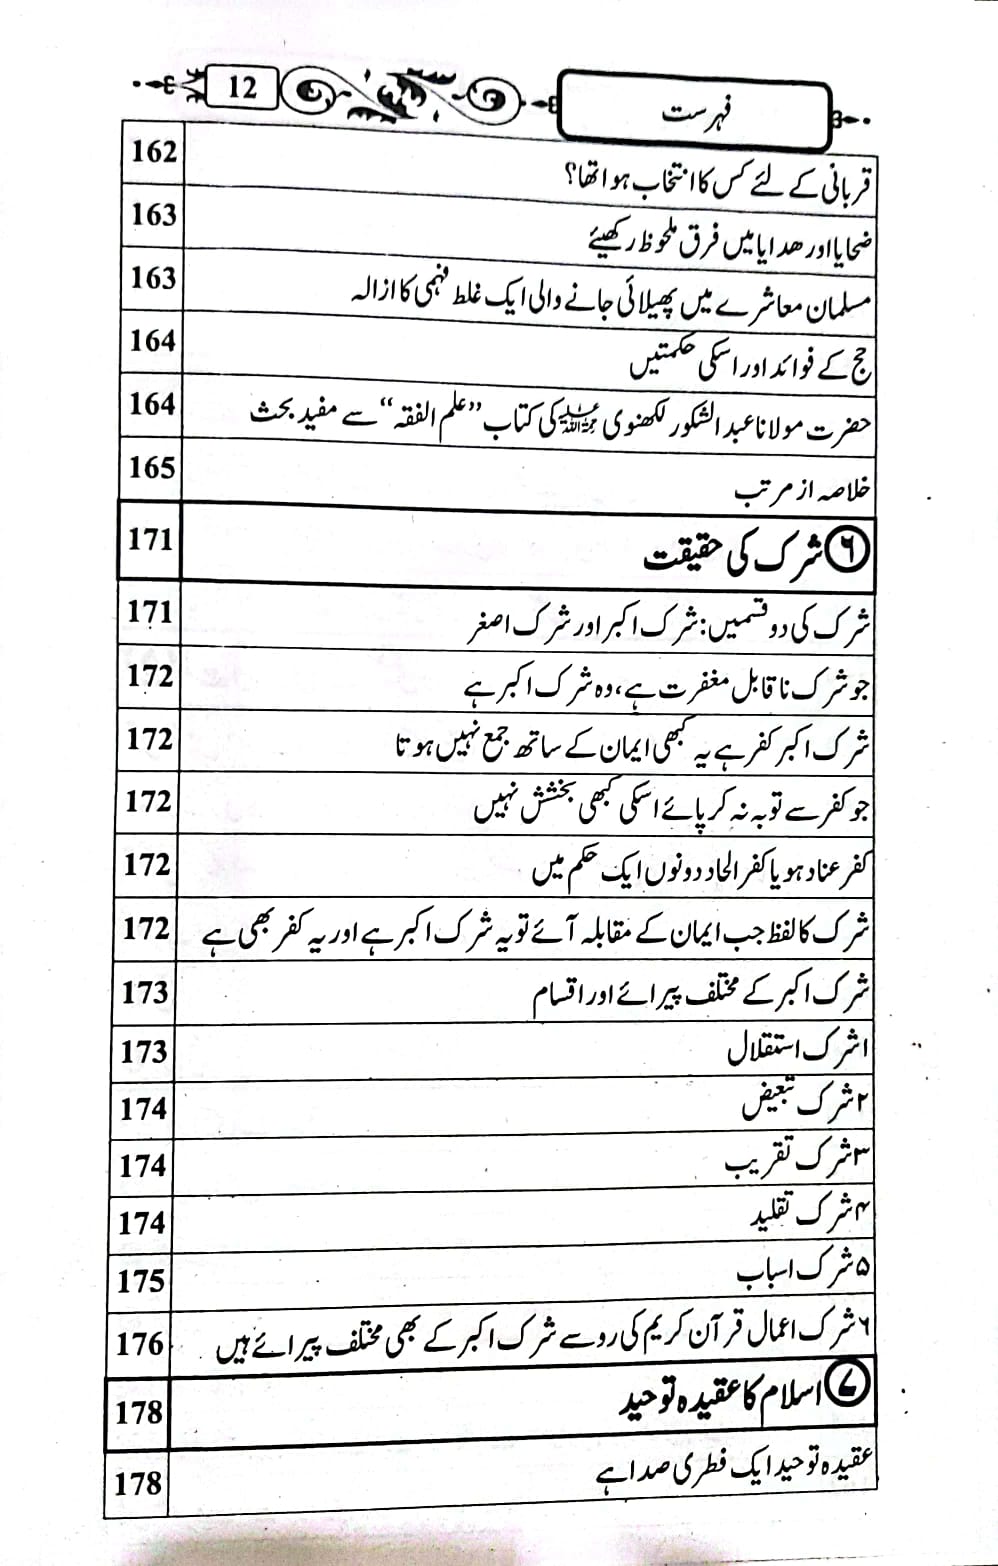 فہرست
12
قربانی کے لئے کس کا انتخاب ہوا تھا؟ 162
ضحایا اور ھدایا میں فرق ملحوظ رکھیئے 163
مسلمان معاشرے میں پھیلائی جانے والی ایک غلط فہمی کا ازالہ 163
حج کے فوائد اور اسکی حکمتیں 164
حضرت مولانا عبدالشکور لکھنوی رحمۃ اللہ علیہ کی کتاب ”علم الفقہ“ سے مفید بحث 164
خلاصہ از مرتب 165
۶ شرک کی حقیقت 171
شرک کی دو قسمیں: شرک اکبر اور شرک اصغر 171
جو شرک ناقابل مغفرت ہے، وہ شرک اکبر ہے 172
شرک اکبر کفر ہے یہ کبھی ایمان کے ساتھ جمع نہیں ہوتا 172
جو کفر سے توبہ نہ کر پائے اسکی کبھی بخشش نہیں 172
کفر عناد ہو یا کفر الحاد دونوں ایک حکم میں 172
شرک کا لفظ جب ایمان کے مقابلہ آئے تو یہ شرک اکبر ہے اور یہ کفر بھی ہے 172
شرک اکبر کے مختلف پیرائے اور اقسام 173
۱ شرک استقلال 173
۲ شرک تبعیض 174
۳ شرک تقریب 174
۴ شرک تقلید 174
۵ شرک اسباب 175
۶ شرک اعمال قرآن کریم کی رو سے شرک اکبر کے بھی مختلف پیرائے ہیں 176
۷ اسلام کا عقیدہ توحید 178
عقیدہ توحید ایک فطری صدا ہے 178